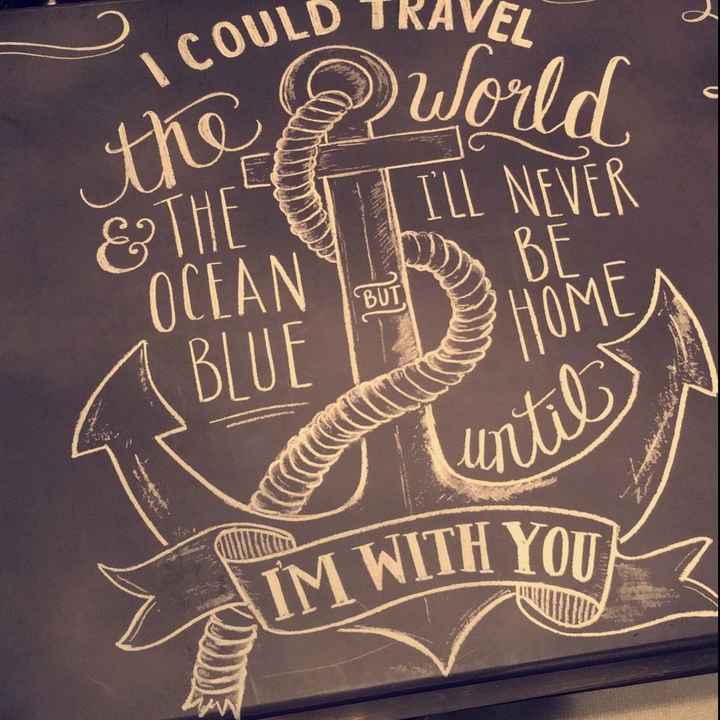 I COULD TRAVEL
the World
& THE
OCEAN
BLUE
BUT
I'LL NEVER
BE
HOME
until
I'M WITH YOU